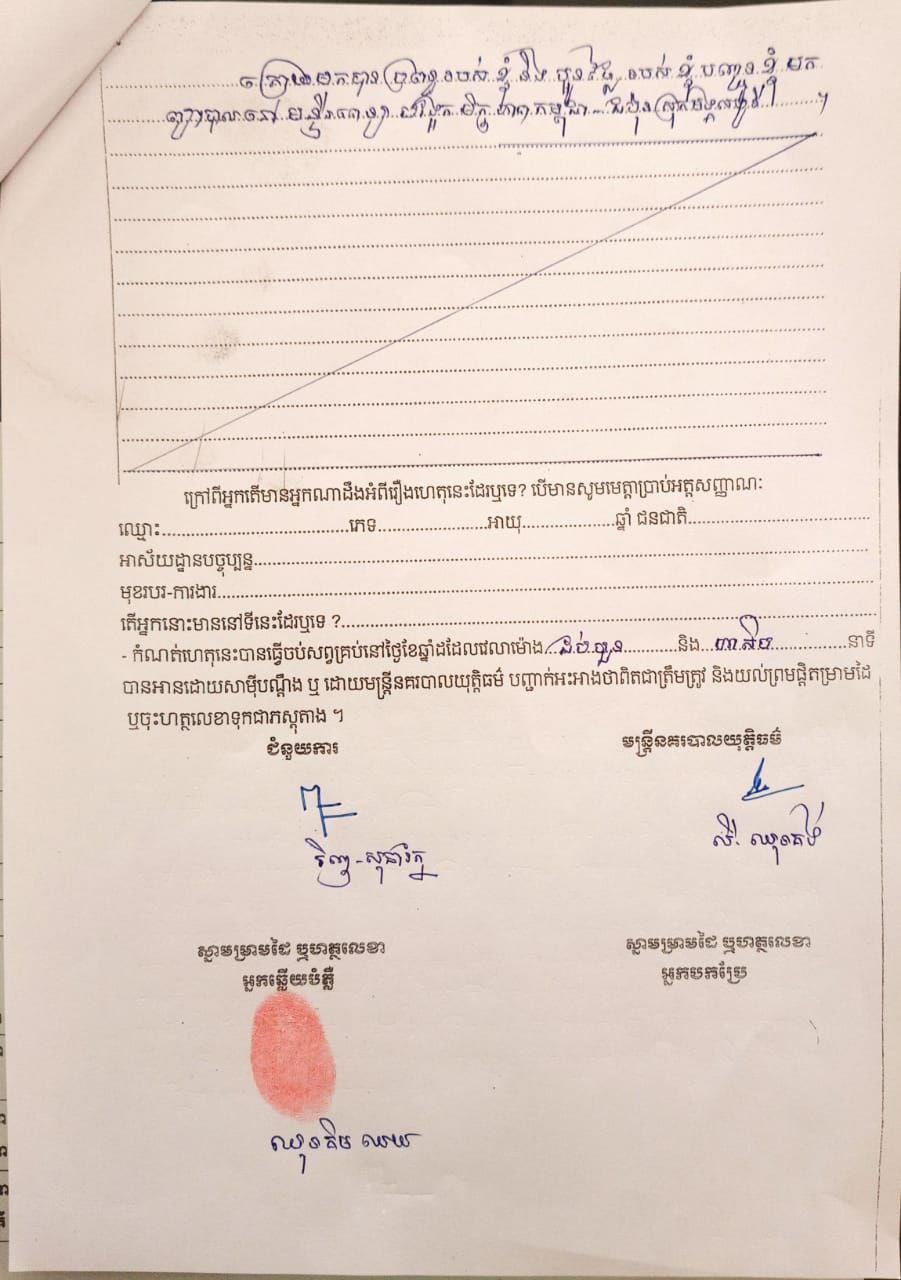 ក្រោយមកបានប្រពន្ធរបស់ខ្ញុំ និង ប្អូនថ្លៃ របស់ ខ្ញុំ បញ្ជូន ខ្ញុំ មក
ព្យាបាលនៅ មន្ទីរពេទ្យ មិត្តភាព កម្ពុជា ។
ក្រៅពីអ្នកតើមានអ្នកណាដឹងអំពីរឿងហេតុនេះដែរឬទេ? បើមានសូមមេត្តាប្រាប់អត្តសញ្ញាណៈ
ឈ្មោះ.................................ភេទ....................អាយុ.................ឆ្នាំ ជនជាតិ.................................
អាស័យដ្ឋានបច្ចុប្បន្ន.................................
មុខរបរ-ការងារ.................................
តើអ្នកនោះមាននៅទីនេះដែរឬទេ ?.................................
- កំណត់ហេតុនេះបានធ្វើចប់សព្វគ្រប់នៅថ្ងៃខែឆ្នាំដដែលវេលាម៉ោង...ដប់បួន..........និង...ហាសិប..............នាទី
បានអានដោយសាមុីបណ្តឹង ឬ ដោយមន្ត្រីនគរបាលយុត្តិធម៌ បញ្ជាក់អះអាងថាពិតជាត្រឹមត្រូវ និងយល់ព្រមផ្តិតម្រាមដៃ
ឬចុះហត្ថលេខាទុកជាភស្តុតាង ។
ជំនួយការ
មន្ត្រីនគរបាលយុត្តិធម៌
ស្នាមម្រាមដៃ ឬហត្ថលេខា
ស្នាមម្រាមដៃ ឬហត្ថលេខា
អ្នកឆ្លើយបំភ្លឺ
អ្នកបកប្រែ